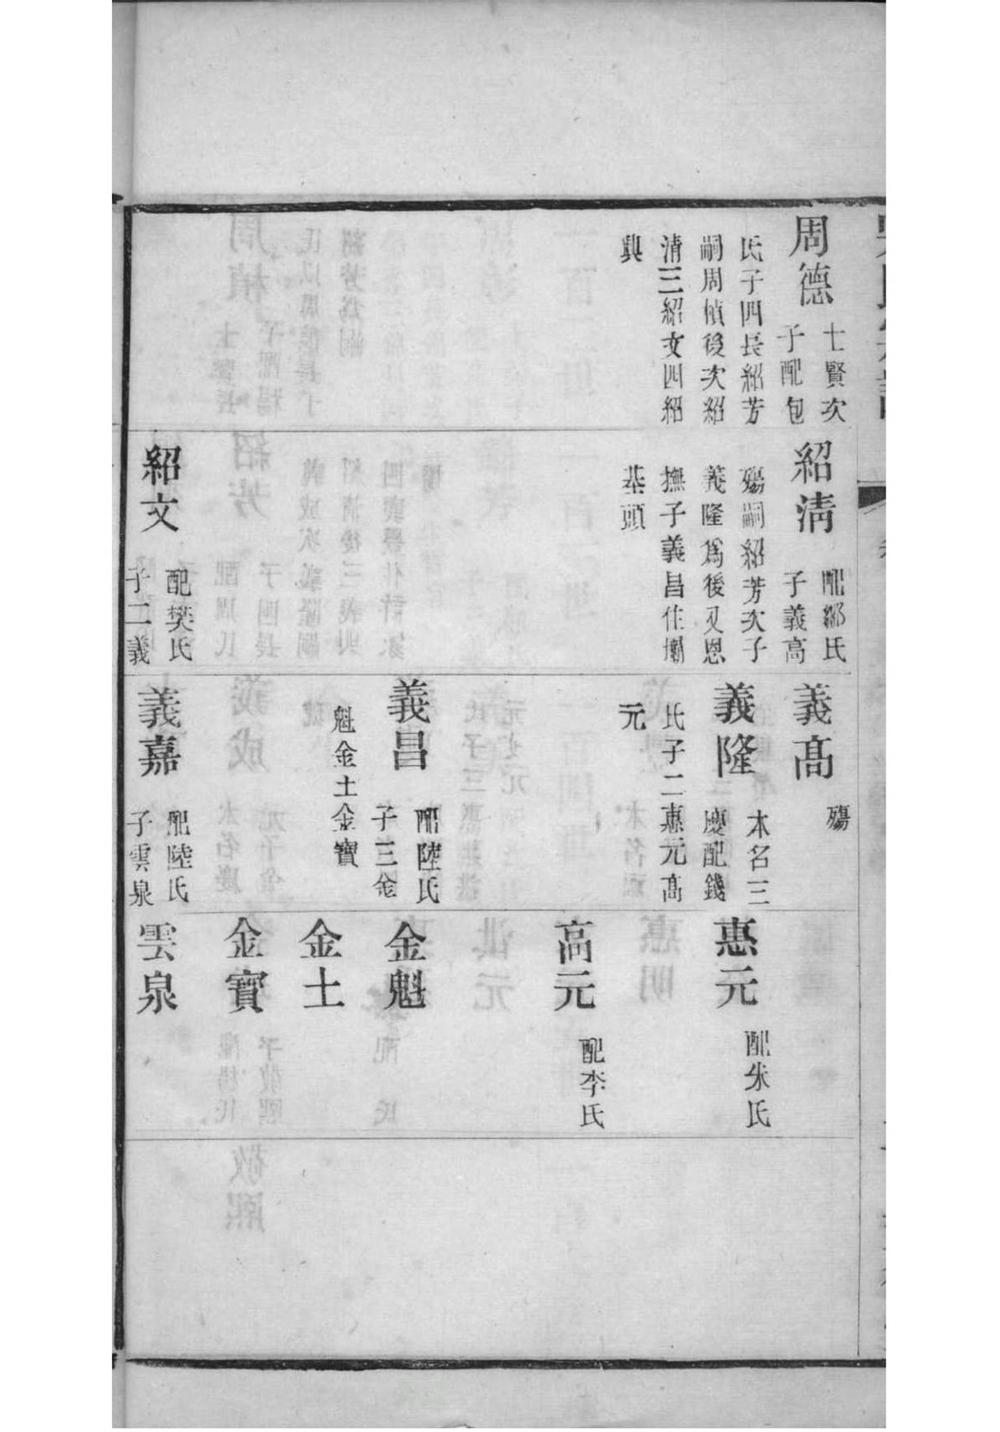 周德
士賢次
子配包
氏子四長紹芳
嗣周楨後次紹
清三紹文四紹
興
紹清
配鄒氏
子義高
殤嗣紹芳次子
義隆爲後又恩
撫子義昌住壩
基頭
紹文
配樊氏
子二義
義高
殤
義隆
木名三
慶配錢
氏子二惠元高
元
義昌
配陸氏
子三金
魁金土金寶
義嘉
配陸氏
子雲泉
惠元
配朱氏
高元
配李氏
金魁
金土
金寶
雲泉